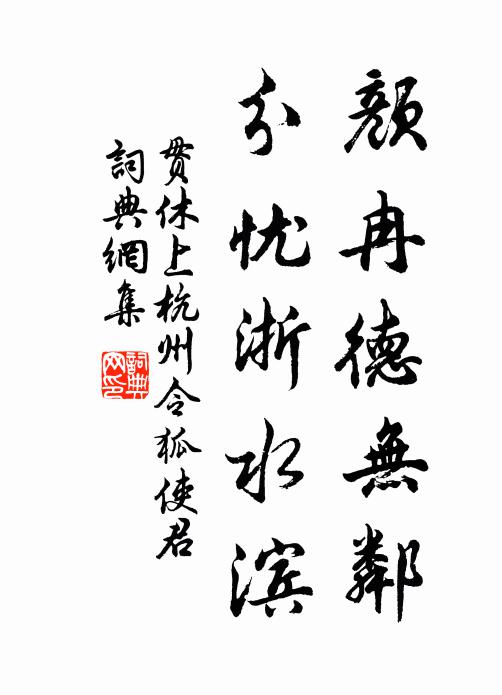 颜冉德無鄰
分忧浙水滨
贯休上杭州令狐使君
詞典網集
詞典网印